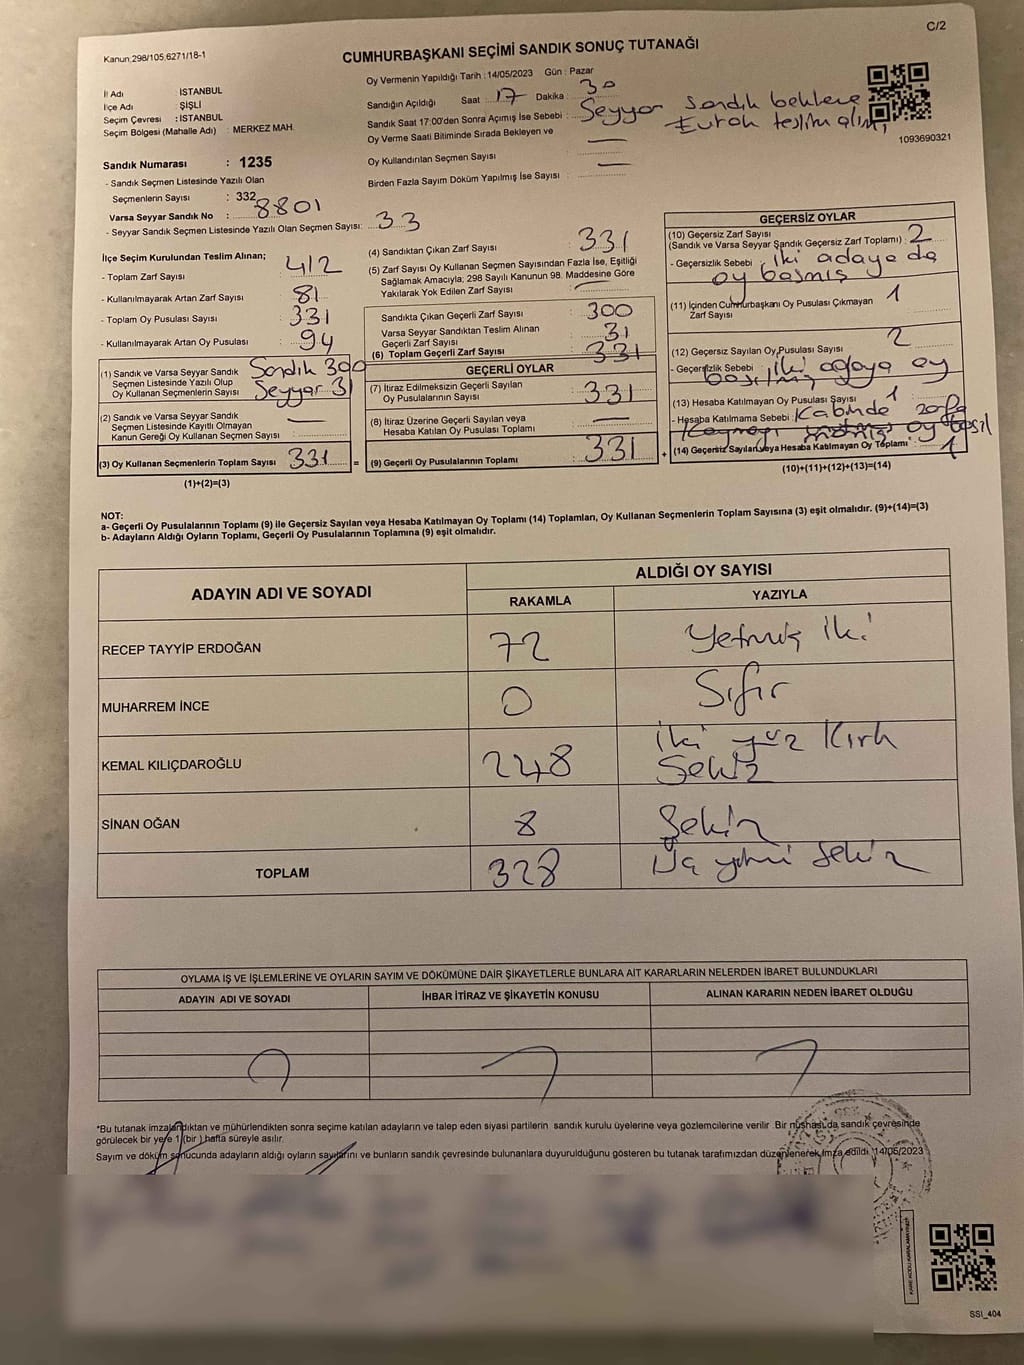 C/2
Kanun:298/105;6271/18-1
CUMHURBAŞKANI SEÇİMİ SANDIK SONUÇ TUTANAĞI
İl Adı : İSTANBUL
İlçe Adı : ŞİŞLİ
Seçim Çevresi : İSTANBUL
Seçim Bölgesi (Mahalle Adı) : MERKEZ MAH.
Sandık Numarası : 1235
- Sandık Seçmen Listesinde Yazılı Olan
Seçmenlerin Sayısı : 332
Varsa Seyyar Sandık No : 8801
- Seyyar Sandık Seçmen Listesinde Yazılı Olan Seçmen Sayısı: 33
Oy Vermenin Yapıldığı Tarih : 14/05/2023 Gün : Pazar
Sandığın Açıldığı Saat : 17 Dakika : 30
Sandık Saat 17:00'den Sonra Açımış İse Sebebi : Seyyar sandık beklene
Evrak teslim alındı
Oy Verme Saati Bitiminde Sırada Bekleyen ve
Oy Kullandırılan Seçmen Sayısı : —
Birden Fazla Sayım Döküm Yapılmış İse Sayısı : —
1093690321
İlçe Seçim Kurulundan Teslim Alınan;
- Toplam Zarf Sayısı : 412
- Kullanılmayarak Artan Zarf Sayısı : 81
- Toplam Oy Pusulası Sayısı : 331
- Kullanılmayarak Artan Oy Pusulası : 94
(1) Sandık ve Varsa Seyyar Sandık Sandık 300
Seçmen Listesinde Yazılı Olup
Oy Kullanan Seçmenlerin Sayısı : Seyyar 31
(2) Sandık ve Varsa Seyyar Sandık
Seçmen Listesinde Kayıtlı Olmayan
Kanun Gereği Oy Kullanan Seçmen Sayısı : —
(3) Oy Kullanan Seçmenlerin Toplam Sayısı : 331 =
(1)+(2)=(3)
(4) Sandıktan Çıkan Zarf Sayısı : 331
(5) Zarf Sayısı Oy Kullanan Seçmen Sayısından Fazla İse, Eşitliği
Sağlamak Amacıyla; 298 Sayılı Kanunun 98. Maddesine Göre
Yakılarak Yok Edilen Zarf Sayısı : —
Sandıkta Çıkan Geçerli Zarf Sayısı : 300
Varsa Seyyar Sandıktan Teslim Alınan
Geçerli Zarf Sayısı : 31
(6) Toplam Geçerli Zarf Sayısı : 331
GEÇERLİ OYLAR
(7) İtiraz Edilmeksizin Geçerli Sayılan
Oy Pusulasının Sayısı : 331
(8) İtiraz Üzerine Geçerli Sayılan veya
Hesaba Katılan Oy Pusulası Toplamı : —
(9) Geçerli Oy Pusulalarının Toplamı : 331 +
GEÇERSİZ OYLAR
(10) Geçersiz Zarf Sayısı
(Sandık ve Varsa Seyyar Sandık Geçersiz Zarf Toplamı) : 2
- Geçersizlik Sebebi : iki adaya da
oy basmış
(11) İçinden Cumhurbaşkanı Oy Pusulası Çıkmayan
Zarf Sayısı : 1
(12) Geçersiz Sayılan Oy Pusulası Sayısı : 2
- Geçersizlik Sebebi : iki adaya oy
basılmış
(13) Hesaba Katılmayan Oy Pusulası Sayısı : 1
- Hesaba Katılmama Sebebi : Kabinde zarfa
oy
(14) Geçersiz Sayılan veya Hesaba Katılmayan Oy Toplamı : 1
(10)+(11)+(12)+(13)=(14)
NOT:
a- Geçerli Oy Pusulalarının Toplamı (9) ile Geçersiz Sayılan veya Hesaba Katılmayan Oy Toplamı (14) Toplamları, Oy Kullanan Seçmenlerin Toplam Sayısına (3) eşit olmalıdır. (9)+(14)=(3)
b- Adayların Aldığı Oyların Toplamı, Geçerli Oy Pusulalarının Toplamına (9) eşit olmalıdır.
ADAYIN ADI VE SOYADI
ALDIĞI OY SAYISI
RAKAMLA YAZIYLA
RECEP TAYYİP ERDOĞAN 72 Yetmiş iki
MUHARREM İNCE 0 Sıfır
KEMAL KILIÇDAROĞLU 248 İki yüz Kırk
Sekiz
SİNAN OĞAN 8 Sekiz
TOPLAM 328 Üç yirmi sekiz
OYLAMA İŞ VE İŞLEMLERİNE VE OYLARIN SAYIM VE DÖKÜMÜNE DAİR ŞİKAYETLERLE BUNLARA AİT KARARLARIN NELERDEN İBARET BULUNDUKLARI
ADAYIN ADI VE SOYADI İHBAR İTİRAZ VE ŞİKAYETİN KONUSU ALINAN KARARIN NEDEN İBARET OLDUĞU
*Bu tutanak imzalandıktan ve mühürlendikten sonra seçime katılan adayların ve talep eden siyasi partilerin sandık kurulu üyelerine veya gözlemcilerine verilir. Bir nüshası da sandık çevresinde
görülecek bir yere 1 (bir ) hafta süreyle asılır.
Sayım ve döküm sonucunda adayların aldığı oyların sayılarını ve bunların sandık çevresinde bulunanlara duyurulduğunu gösteren bu tutanak tarafımızdan düzenlenerek imza edildi. 14/05/2023
SSI_404